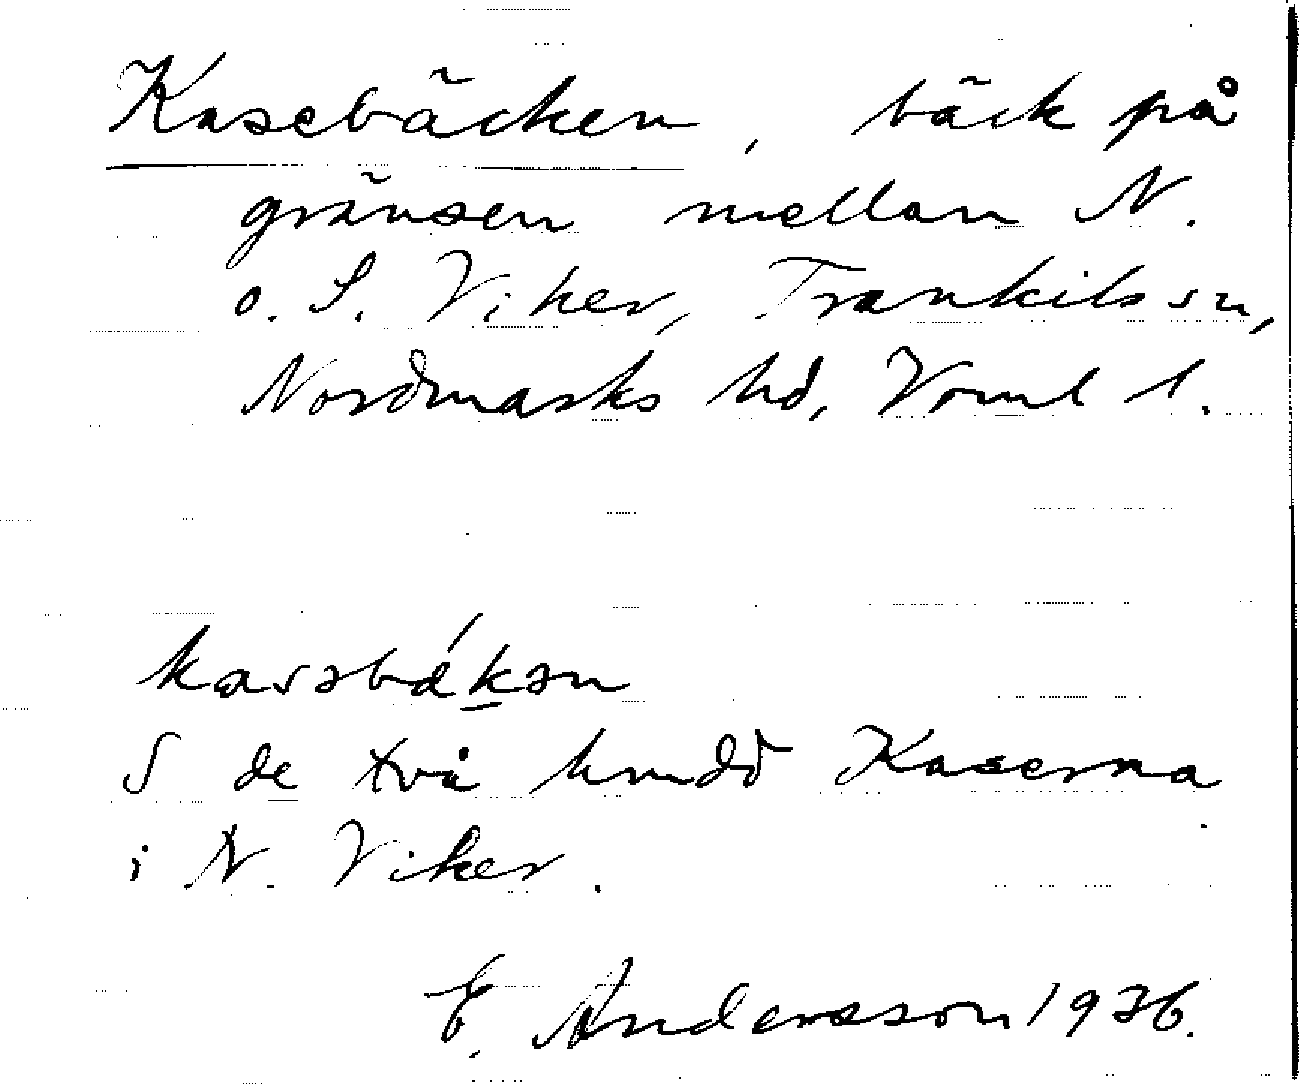 Kasebäcken, bäck på
gränsen mellan N.
o. S. Viker, Trankils sn,
Nordmarks hd, Värml l.
kasəbä́kən
S de två hmdd Kaserna
i N. Viker.
E. Andersson 1936.